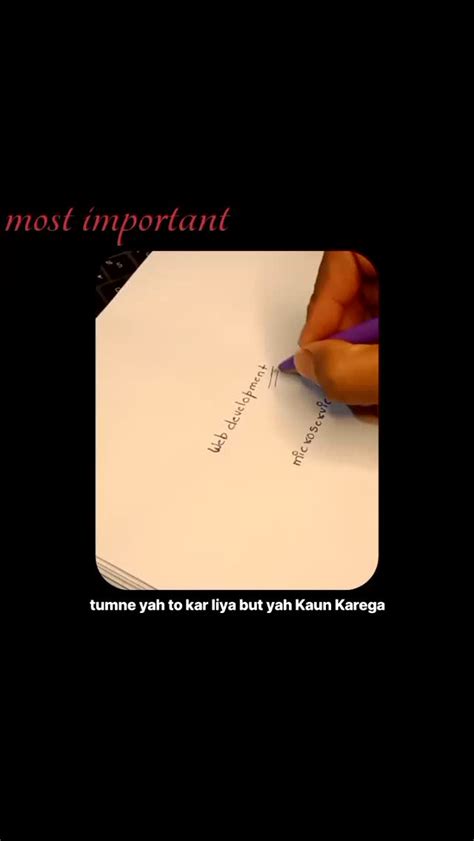 most important
Web development
microservic
tumne yah to kar liya but yah Kaun Karega